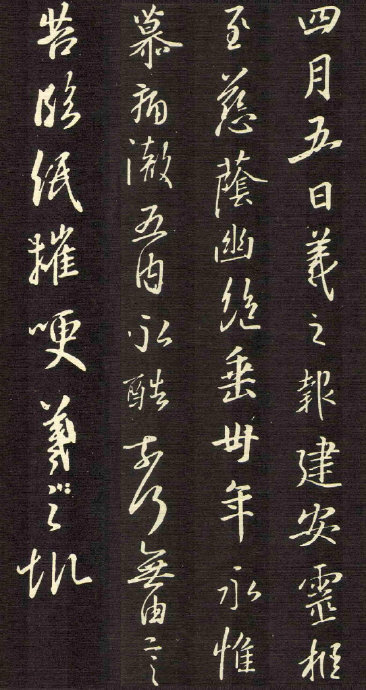 四月五日羲之報建安靈柩
至慈蔭幽絕垂卅年永惟
慕痛徹五內永酷奈何無由言
告臨紙摧哽羲之報